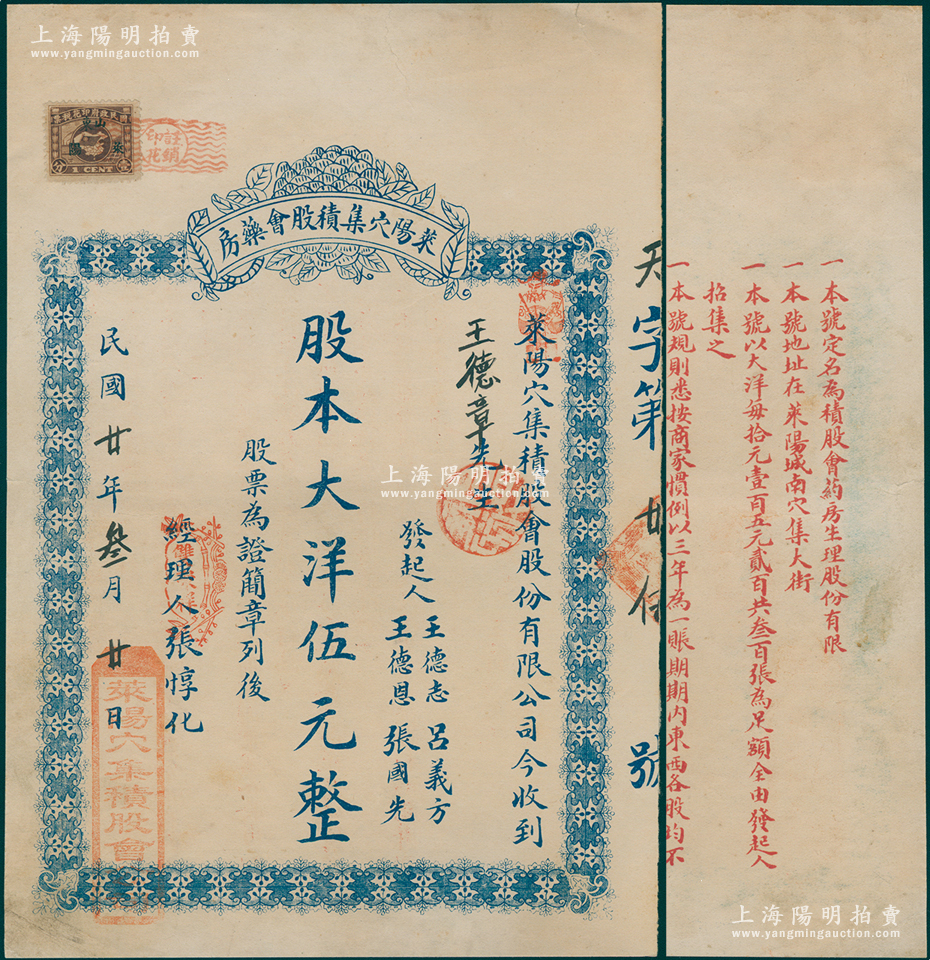 上海陽明拍賣
www.yangmingauction.com
國民政府印花稅票
山東
萊陽
1 CENT
註銷
印花
萊陽穴集積股會藥房
天字第廿伍號
萊陽穴集積股會股份有限公司今收到
王德章先生
發起人 王德志 呂義方
王德恩 張國先
股本大洋伍元整
股票為證簡章列後
經理人張惇化
民國廿年叁月廿日
萊陽穴集積股會
一本號定名為積股會葯房生理股份有限
一本號地址在萊陽城南穴集大街
一本號以大洋每拾元壹百五元貳百共叁百張為足額全由發起人
招集之
一本號規則悉按商家慣例以三年為一賬期期內東西各股均不
上海陽明拍賣
www.yangmingauction.com
上海陽明拍賣
www.yangmingauction.com